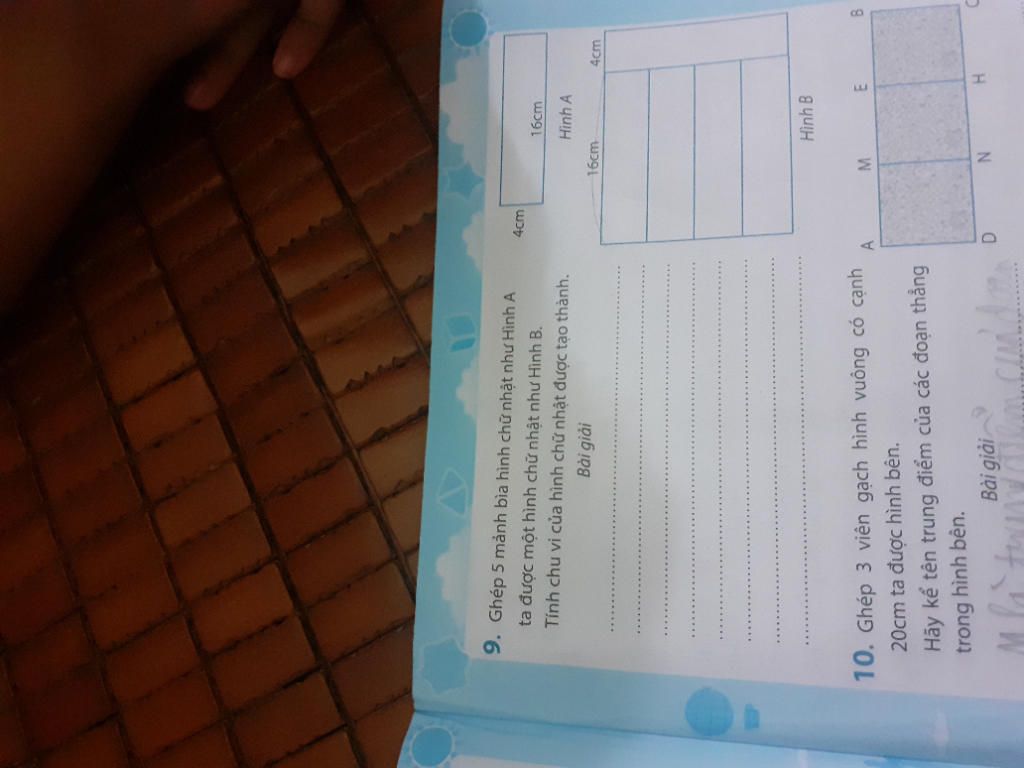 9. Ghép 5 mảnh bìa hình chữ nhật như Hình A
ta được một hình chữ nhật như Hình B.
Tính chu vi của hình chữ nhật được tạo thành.
4cm
16cm
Hình A
Bài giải
16cm
4cm
Hình B
10. Ghép 3 viên gạch hình vuông có cạnh
20cm ta được hình bên.
Hãy kể tên trung điểm của các đoạn thẳng
trong hình bên.
A M E B
D N H C
Bài giải
M là trung điểm của